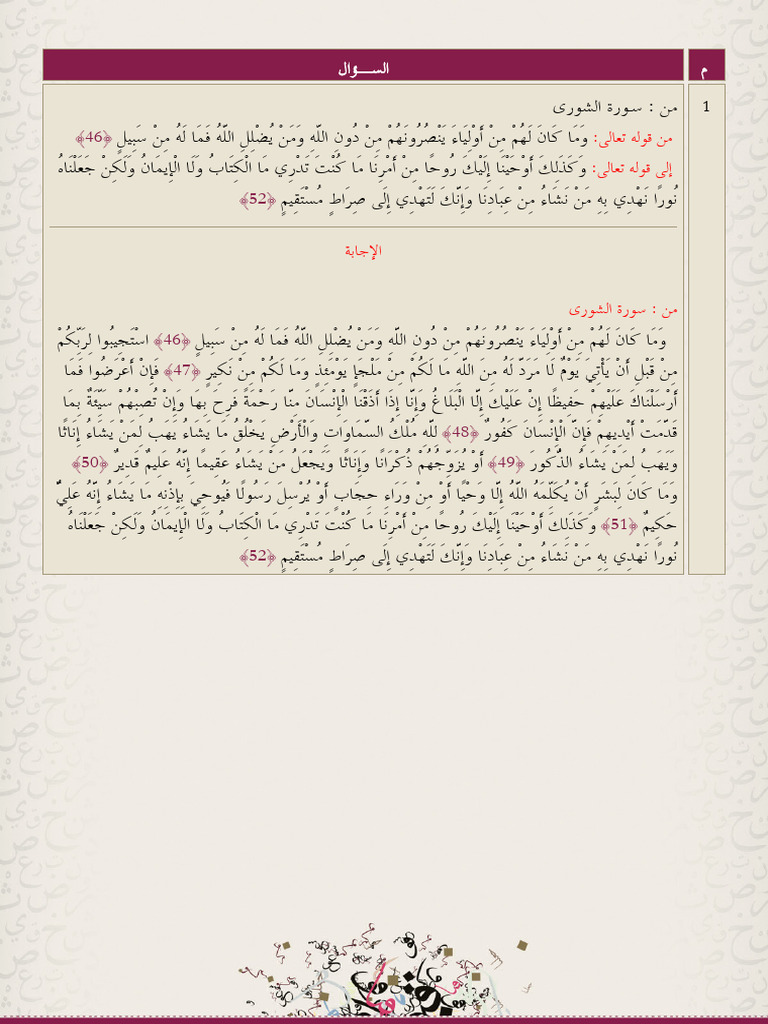 م السـؤال
1 من : سورة الشورى
من قوله تعالى: وَمَا كَانَ لَهُمْ مِنْ أَوْلِيَاءَ يَنْصُرُونَهُمْ مِنْ دُونِ اللَّهِ وَمَنْ يُضْلِلِ اللَّهُ فَمَا لَهُ مِنْ سَبِيلٍ ﴿46﴾
إلى قوله تعالى: وَكَذَلِكَ أَوْحَيْنَا إِلَيْكَ رُوحًا مِنْ أَمْرِنَا مَا كُنْتَ تَدْرِي مَا الْكِتَابُ وَلَا الْإِيمَانُ وَلَكِنْ جَعَلْنَاهُ
نُورًا نَهْدِي بِهِ مَنْ نَشَاءُ مِنْ عِبَادِنَا وَإِنَّكَ لَتَهْدِي إِلَى صِرَاطٍ مُسْتَقِيمٍ ﴿52﴾
الإجابة
من : سورة الشورى
وَمَا كَانَ لَهُمْ مِنْ أَوْلِيَاءَ يَنْصُرُونَهُمْ مِنْ دُونِ اللَّهِ وَمَنْ يُضْلِلِ اللَّهُ فَمَا لَهُ مِنْ سَبِيلٍ ﴿46﴾ اسْتَجِيبُوا لِرَبِّكُمْ
مِنْ قَبْلِ أَنْ يَأْتِيَ يَوْمٌ لَا مَرَدَّ لَهُ مِنَ اللَّهِ مَا لَكُمْ مِنْ مَلْجَإٍ يَوْمَئِذٍ وَمَا لَكُمْ مِنْ نَكِيرٍ ﴿47﴾ فَإِنْ أَعْرَضُوا فَمَا
أَرْسَلْنَاكَ عَلَيْهِمْ حَفِيظًا إِنْ عَلَيْكَ إِلَّا الْبَلَاغُ وَإِنَّا إِذَا أَذَقْنَا الْإِنْسَانَ مِنَّا رَحْمَةً فَرِحَ بِهَا وَإِنْ تُصِبْهُمْ سَيِّئَةٌ بِمَا
قَدَّمَتْ أَيْدِيهِمْ فَإِنَّ الْإِنْسَانَ كَفُورٌ ﴿48﴾ لِلَّهِ مُلْكُ السَّمَاوَاتِ وَالْأَرْضِ يَخْلُقُ مَا يَشَاءُ يَهَبُ لِمَنْ يَشَاءُ إِنَاثًا
وَيَهَبُ لِمَنْ يَشَاءُ الذُّكُورَ ﴿49﴾ أَوْ يُزَوِّجُهُمْ ذُكْرَانًا وَإِنَاثًا وَيَجْعَلُ مَنْ يَشَاءُ عَقِيمًا إِنَّهُ عَلِيمٌ قَدِيرٌ ﴿50﴾
وَمَا كَانَ لِبَشَرٍ أَنْ يُكَلِّمَهُ اللَّهُ إِلَّا وَحْيًا أَوْ مِنْ وَرَاءِ حِجَابٍ أَوْ يُرْسِلَ رَسُولًا فَيُوحِيَ بِإِذْنِهِ مَا يَشَاءُ إِنَّهُ عَلِيٌّ
حَكِيمٌ ﴿51﴾ وَكَذَلِكَ أَوْحَيْنَا إِلَيْكَ رُوحًا مِنْ أَمْرِنَا مَا كُنْتَ تَدْرِي مَا الْكِتَابُ وَلَا الْإِيمَانُ وَلَكِنْ جَعَلْنَاهُ
نُورًا نَهْدِي بِهِ مَنْ نَشَاءُ مِنْ عِبَادِنَا وَإِنَّكَ لَتَهْدِي إِلَى صِرَاطٍ مُسْتَقِيمٍ ﴿52﴾